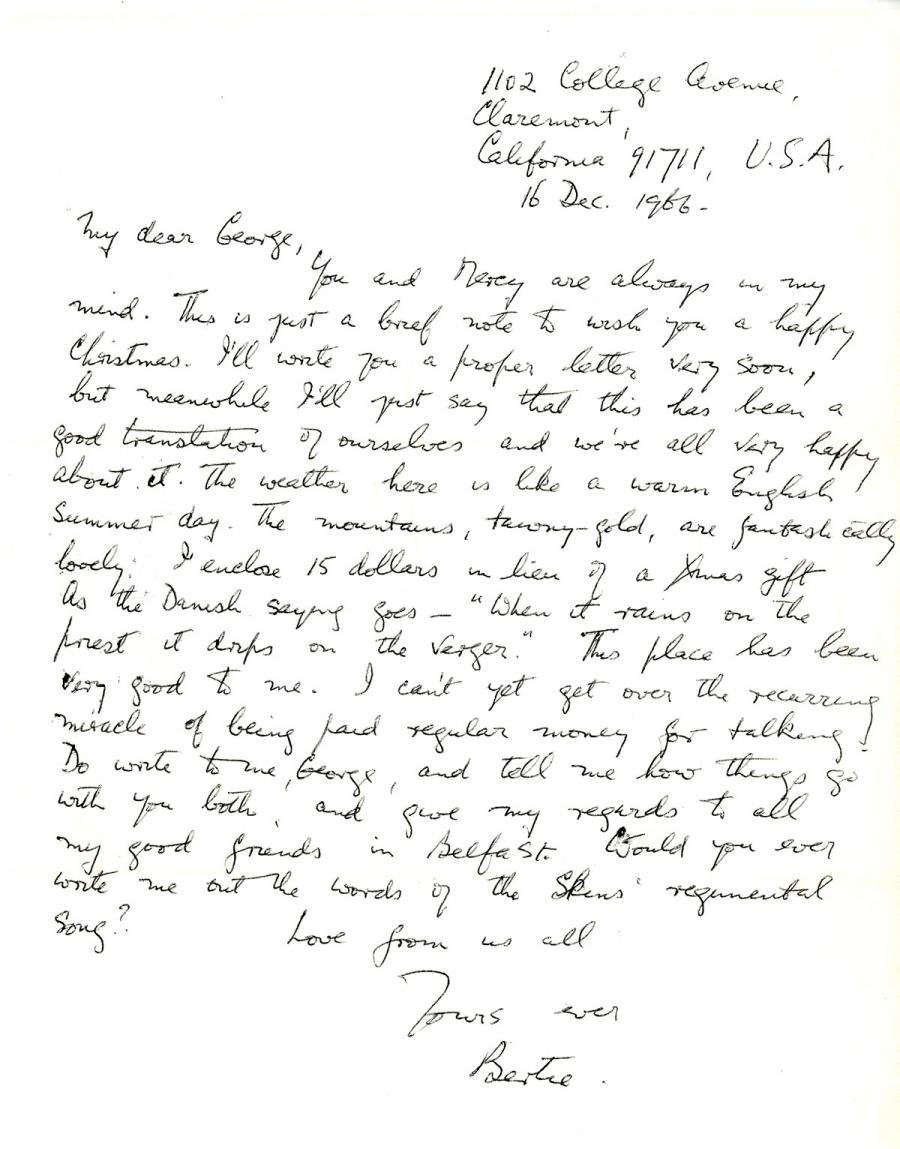 1102 College Avenue,
Claremont,
California 91711, U.S.A.
16 Dec. 1966-
My dear George,
You and Mercy are always in my
mind. This is just a brief note to wish you a happy
Christmas. I'll write you a proper letter very soon,
but meanwhile I'll just say that this has been a
good translation of ourselves and we're all very happy
about it. The weather here is like a warm English
Summer day. The mountains, tawny-gold, are fantastically
lovely. I enclose 15 dollars in lieu of a Xmas gift
As the Danish saying goes - "When it rains on the
priest it drips on the verger." This place has been
very good to me. I can't yet get over the recurring
miracle of being paid regular money for talking!
Do write to me, George, and tell me how things go
with you both, and give my regards to all
my good friends in Belfast. Would you ever
write me out the words of the Skins' regimental
song? Love from us all
Yours ever
Bertie.